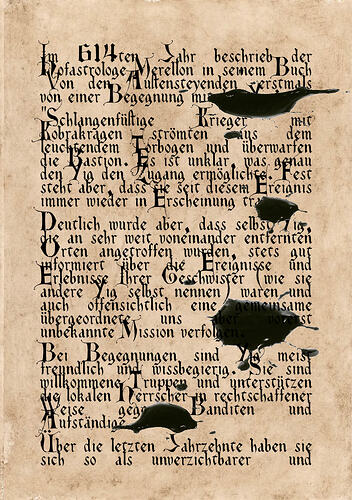 Im 614ten Jahr beschrieb der
Hofastrologe Merellon in seinem Buch
"Von den Außenstehenden" erstmals
von einer Begegnung mit
"Schlangenfüßige Krieger mit
Kobrakrägen strömten aus dem
leuchtendem Torbogen und überwarfen
die Bastion. Es ist unklar, was genau
den Yig den Zugang ermöglichte. Fest
steht aber, dass sie seit diesem Ereignis
immer wieder in Erscheinung
Deutlich wurde aber, dass selbst Yig,
die an sehr weit voneinander entfernten
Orten angetroffen wurden, stets gut
informiert über die Ereignisse und
Erlebnisse ihrer Geschwister (wie sie
andere Yig selbst nennen) waren und
auch offensichtlich eine gemeinsame
übergeordnete, uns aber vorerst
unbekannte Mission verfolgen.
Bei Begegnungen sind Yig meist
freundlich und wissbegierig. Sie sind
willkommene Truppen und unterstützen
die lokalen Herrscher in rechtschaffener
Weise gegen Banditen und
Aufständige.
Über die letzten Jahrzehnte haben sie
sich so als unverzichtbarer und